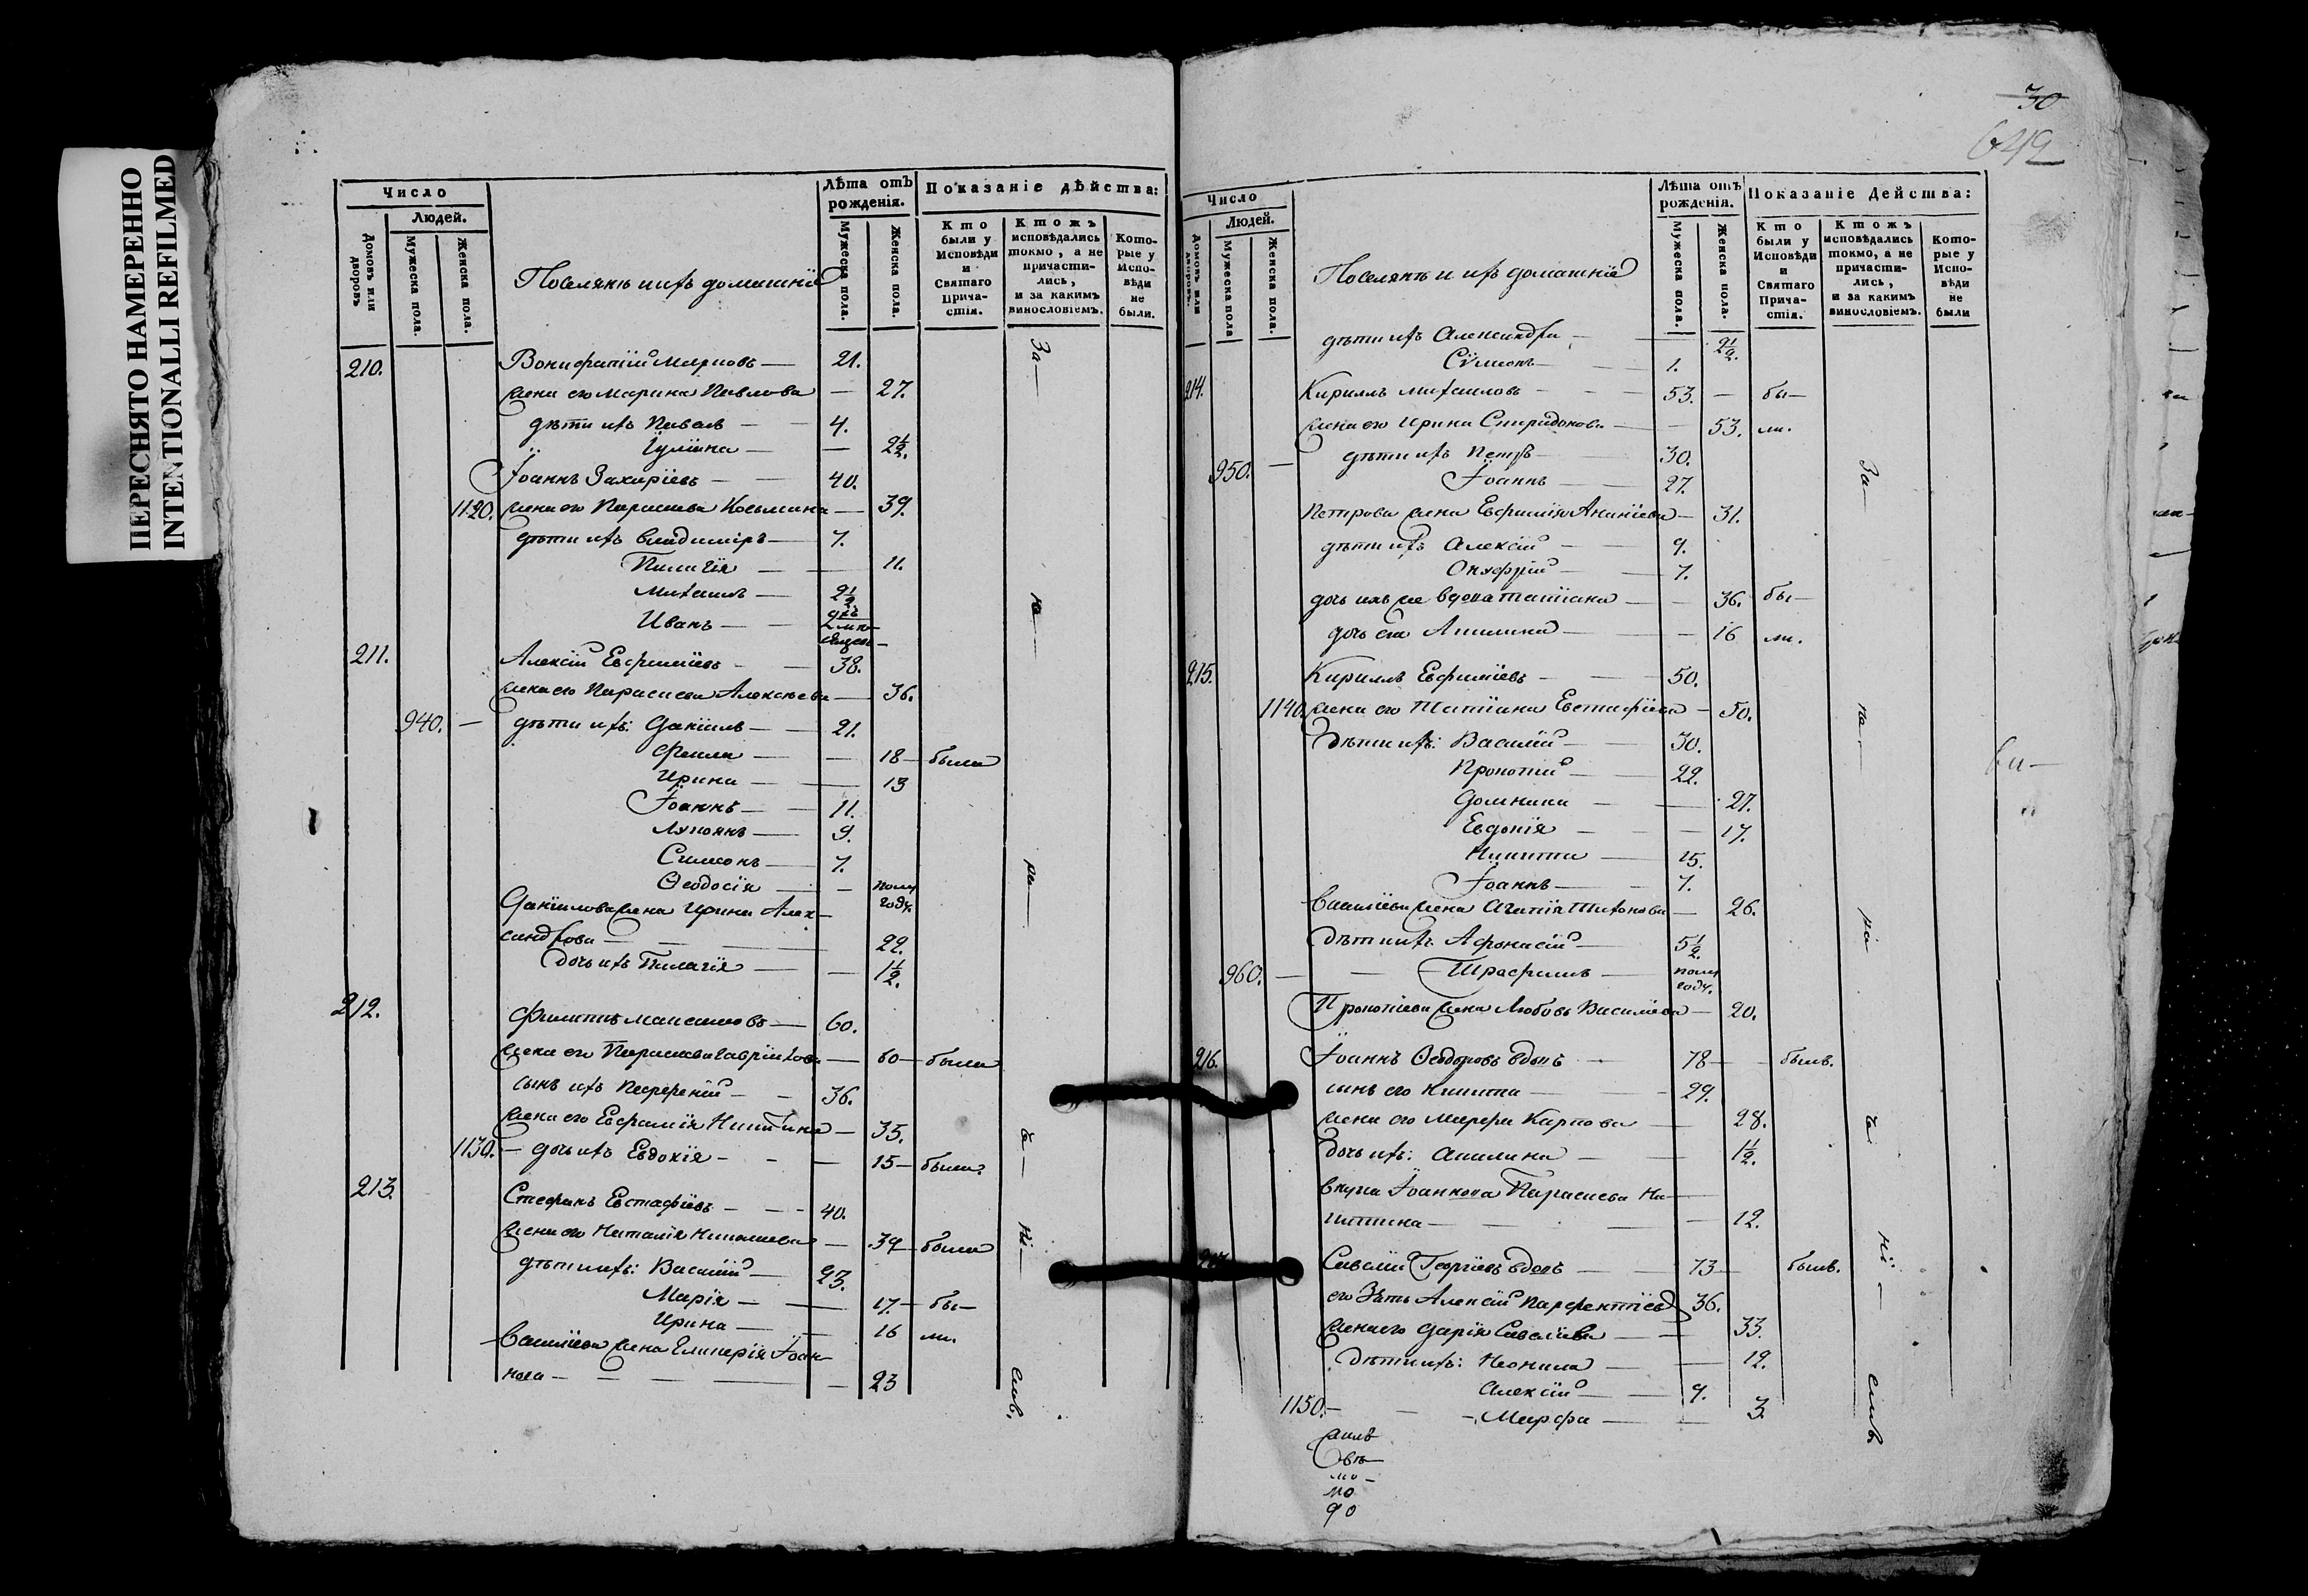 ПЕРЕСНЯТО НАМЕРЕННО
INTENTIONALLI REFILMED
Число
Людей.
Домовъ или дворовъ
Мужеска пола.
Женска пола.
Поселянъ и ихъ домашніе
Лѣта отъ рожденія.
Мужеска пола.
Женска пола.
Показаніе дѣйства:
Кто были у Исповѣди и Святаго Причастія.
Ктожъ исповѣдались токмо, а не причастились, и за какимъ винословіемъ.
Которые у Исповѣди не были.
210. Вонифатій Марковъ — 21.
жена его Марина Павлова — 27.
дѣти ихъ Павелъ — 4.
Іуліана — 2½.
Іоаннъ Захаріевъ — 40.
1120. жена его Параскева Косьмина — 39.
дѣти ихъ Владиміръ — 7.
Пилагія — 11.
Михаилъ — 2½
Иванъ —
211. Алексій Евфиміевъ — 38.
жена его Параскева Алексѣева — 36.
940. — дѣти ихъ: Даніилъ — 21.
Фекла — 18 — была
Ирина — 13
Іоаннъ — 11.
Лукіанъ — 9.
Симеонъ — 7.
Ѳеодосія — полу году.
Даніилова жена Ирина Алек-
сандрова — 22.
дочь ихъ Пилагія — 1½.
212. Филиппъ Максимовъ — 60.
жена его Параскева Гавріилова — 60 — была
сынъ ихъ Парфеній — 36.
жена его Евфимія Никитина — 35.
1130. — дочь ихъ Евдокія — 15 — была.
213. Стефанъ Евстафіевъ — 40.
жена его Наталія Николаева — 39 — была
дѣти ихъ: Василій — 23.
Марія — 17. — бы-
Ирина — 16 ли.
Василіева жена Гликерія Іоан-
нова — 23
За — не — бы — ніемъ
30
649
Число
Людей.
Домовъ или дворовъ.
Мужеска пола
Женска пола.
Поселянъ и ихъ домашніе
Лѣта отъ рожденія.
Мужеска пола.
Женска пола.
Показаніе Действа:
Кто были у Исповѣди и Святаго Причастія.
Ктожъ исповѣдались токмо, а не причастились, и за какимъ винословіемъ.
Которые у Исповѣди не были
дѣти ихъ Александра — 2½.
Сумеонъ — 1.
214. Кириллъ Михаиловъ — 53. — бы—
жена его Ирина Спиридонова — 53. ли.
дѣти ихъ Петръ — 30.
950. — Іоаннъ — 27.
Петрова жена Евфимія Ананіева — 31.
дѣти ихъ Алексій — 9.
Онуфрій — 7.
дочь ихъ же вдова Татіана — 36. бы—
дочь ея Акилина — 16 ли.
215. Кириллъ Евфиміевъ — 50.
1140. жена его Татіана Евстафіева — 50.
Дѣти ихъ: Василій — 30.
Прокопій — 22.
Домникія — 27.
Евдокія — 17.
Никита — 15.
Іоаннъ — 7.
Василіева жена Агапія Тихонова — 26.
Дѣти ихъ Афонасій — 5½.
960. — Трофимъ — полу году.
Прокопіева жена Любовь Василіева — 20.
216. Іоаннъ Ѳеодоровъ вдовъ — 78 — былъ.
сынъ его Никита — 29.
жена его Марфа Карпова — 28.
дочь ихъ: Акилина — 1½.
внука Іоаннова Параскева Ни-
китина — 12.
217. Савелій Георгіевъ вдовъ — 73 — былъ.
его Зять Алексій Парфентіевъ 36.
жена его Дарія Савеліева — 33.
Дѣти ихъ: Неонила — 12.
Алексій — 9.
1150. — Марфа — 3.